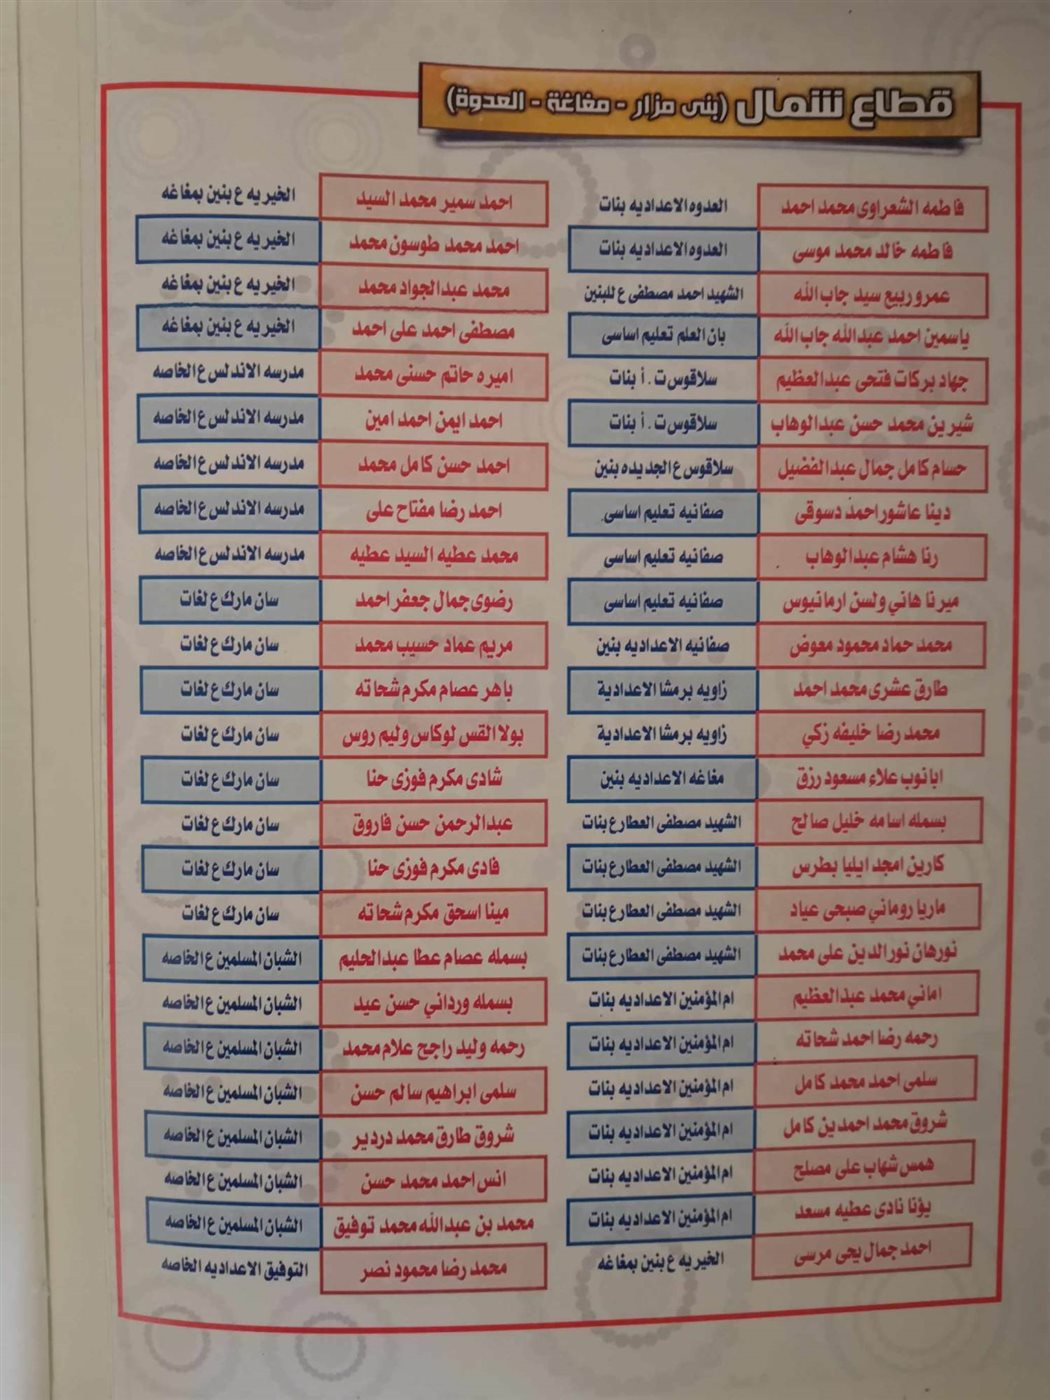 قطاع شمال (بنى مزار - مغاغة - العدوة)
فاطمه الشعراوى محمد احمد العدوه الاعداديه بنات
فاطمه خالد محمد موسى العدوه الاعداديه بنات
عمرو ربيع سيد جاب الله الشهيد احمد مصطفى ع للبنين
ياسمين احمد عبدالله جاب الله بان العلم تعليم اساسى
جهاد بركات فتحى عبدالعظيم سلاقوس ت . أ بنات
شيرين محمد حسن عبدالوهاب سلاقوس ت . أ بنات
حسام كامل جمال عبدالفضيل سلاقوس ع الجديده بنين
دينا عاشور احمد دسوقى صفانيه تعليم اساسى
رنا هشام عبدالوهاب صفانيه تعليم اساسى
ميرنا هاني ولسن ارمانيوس صفانيه تعليم اساسى
محمد حماد محمود معوض صفانيه الاعداديه بنين
طارق عشرى محمد احمد زاويه برمشا الاعدادية
محمد رضا خليفه زكي زاويه برمشا الاعدادية
ابانوب علاء مسعود رزق مغاغه الاعداديه بنين
بسمله اسامه خليل صالح الشهيد مصطفى العطار ع بنات
كارين امجد ايليا بطرس الشهيد مصطفى العطار ع بنات
ماريا روماني صبحى عياد الشهيد مصطفى العطار ع بنات
نورهان نورالدين على محمد الشهيد مصطفى العطار ع بنات
اماني محمد عبدالعظيم ام المؤمنين الاعداديه بنات
رحمه رضا احمد شحاته ام المؤمنين الاعداديه بنات
سلمى احمد محمد كامل ام المؤمنين الاعداديه بنات
شروق محمد احمدين كامل ام المؤمنين الاعداديه بنات
همس شهاب على مصلح ام المؤمنين الاعداديه بنات
يؤنا نادى عطيه مسعد ام المؤمنين الاعداديه بنات
احمد جمال يحى مرسى الخيريه ع بنين بمغاغه
احمد سمير محمد السيد الخيريه ع بنين بمغاغه
احمد محمد طوسون محمد الخيريه ع بنين بمغاغه
محمد عبدالجواد محمد الخيريه ع بنين بمغاغه
مصطفى احمد على احمد الخيريه ع بنين بمغاغه
اميره حاتم حسنى محمد مدرسه الاندلس ع الخاصه
احمد ايمن احمد امين مدرسه الاندلس ع الخاصه
احمد حسن كامل محمد مدرسه الاندلس ع الخاصه
احمد رضا مفتاح على مدرسه الاندلس ع الخاصه
محمد عطيه السيد عطيه مدرسه الاندلس ع الخاصه
رضوى جمال جعفر احمد سان مارك ع لغات
مريم عماد حسيب محمد سان مارك ع لغات
باهر عصام مكرم شحاته سان مارك ع لغات
بولا القس لوكاس وليم روس سان مارك ع لغات
شادى مكرم فوزى حنا سان مارك ع لغات
عبدالرحمن حسن فاروق سان مارك ع لغات
فادى مكرم فوزى حنا سان مارك ع لغات
مينا اسحق مكرم شحاته سان مارك ع لغات
بسمله عصام عطا عبدالحليم الشبان المسلمين ع الخاصه
بسمله ورداني حسن عيد الشبان المسلمين ع الخاصه
رحمه وليد راجح علام محمد الشبان المسلمين ع الخاصه
سلمى ابراهيم سالم حسن الشبان المسلمين ع الخاصه
شروق طارق محمد دردير الشبان المسلمين ع الخاصه
انس احمد محمد حسن الشبان المسلمين ع الخاصه
محمد بن عبدالله محمد توفيق الشبان المسلمين ع الخاصه
محمد رضا محمود نصر التوفيق الاعداديه الخاصه